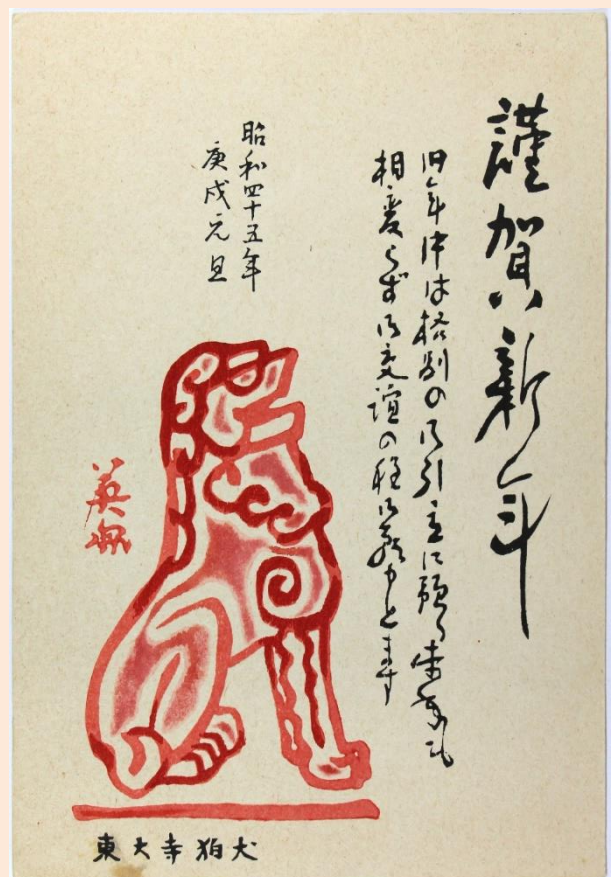 謹賀新年
旧年中は格別の御引立に預り本年も
相変らず御交誼の程御願申上ます
昭和四十五年
庚戌元旦
英
東大寺狛犬